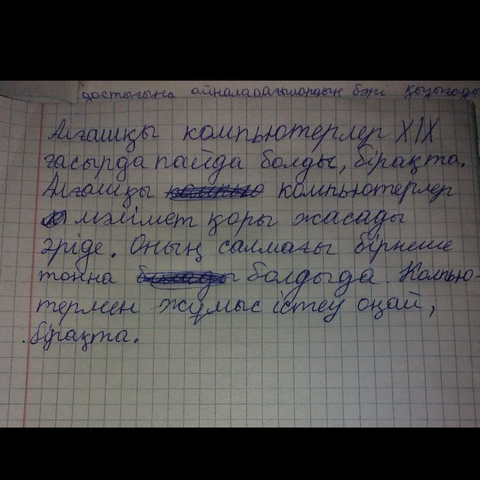 достығына айналадағылардың бәрі қызығады
Алғашқы компьютерлер XIX
ғасырда пайда болды, бірақта.
Алғашқы компьютерлер
мәлімет қоры жасады
әріде. Оның салмағы бірнеше
тонна болдыда. Компью-
термен жұмыс істеу оңай,
бірақта.